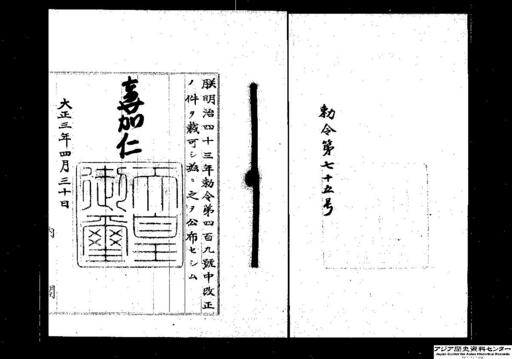 勅令第七十五号
朕明治四十三年勅令第四百九號中改正
ノ件ヲ裁可シ茲ニ之ヲ公布セシム
嘉仁
天皇御璽
大正三年四月三十日
内閣
アジア歴史資料センター
Japan Center for Asian Historical Records